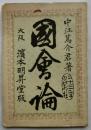 中江篤介君著
國會論
大阪 濱本明昇堂版